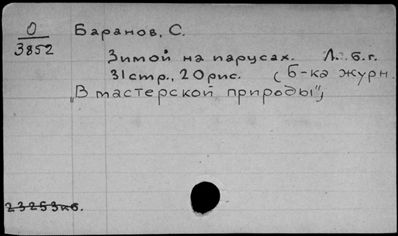 О
3852
Баранов, С.
Зимой на парусах. Л. б.г.
31 стр., 20 рис. (Б-ка журн.
„В мастерской природы",
23253кб.